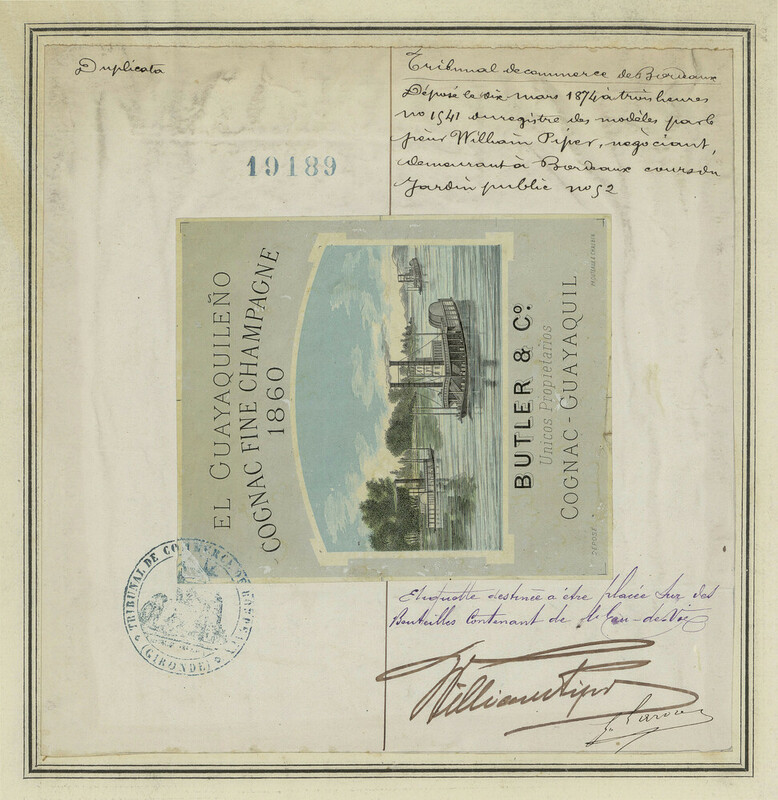 Duplicata
19189
Tribunal de commerce de Bordeaux
Déposé le dix mars 1874 à trois heures
no 1541 du registre des modèles par le
sieur William Piper, négociant,
demeurant à Bordeaux cours du
Jardin public no 52
EL GUAYAQUILEÑO
COGNAC FINE CHAMPAGNE
1860
BUTLER & Co.
Unicos Propietarios
COGNAC - GUAYAQUIL
DÉPOSÉ
TRIBUNAL DE COMMERCE DE BORDEAUX
(GIRONDE)
Etiquette destinée a être placée sur des
Bouteilles contenant de l'Eau-de-Vie
William Piper